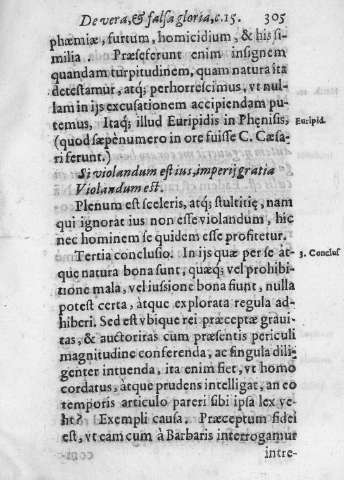 De vera, & falsa gloria, c. 15. 305
phæmiæ, furtum, homicidium, & his si-
milia. Præseferunt enim insignem
quandam turpitudinem, quam natura ita
detestamur, atq; perhorrescimus, vt nul-
lam in ijs excusationem accipiendam pu-
temus. Itaq; illud Euripidis in Phęnisis,
Euripid.
(quod sæpènumero in ore fuisse C. Cæsa-
ri ferunt.)
Si violandum est ius, imperij gratia
Violandum est.
Plenum est sceleris, atq; stultitię, nam
qui ignorat ius non esse violandum, hic
nec hominem se quidem esse profitetur.
Tertia conclusio. In ijs quæ per se at-
3. Conclus
que natura bona sunt, quæq; vel prohibi-
tione mala, vel iussione bona fiunt, nulla
potest certa, atque explorata regula ad-
hiberi. Sed est vbique rei præceptæ graui-
tas, & auctoritas cum præsentis periculi
magnitudine conferenda, ac singula dili-
genter intuenda, ita enim fiet, vt homo
cordatus, àtque prudens intelligat, an eo
temporis articulo pareri sibi ipsa lex ve-
lit? Exempli causa. Præceptum fidei
est, vt eam cum à Barbaris interrogamur
intre-